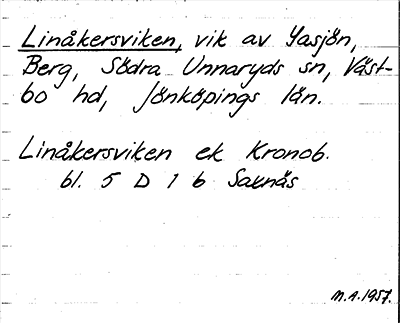 Linåkersviken, vik av Yasjön,
Berg, Södra Unnaryds sn, Väst-
bo hd, Jönköpings län.
Linåkersviken ek Kronob.
bl. 5 D 1 b Saknäs
M.A.1957.